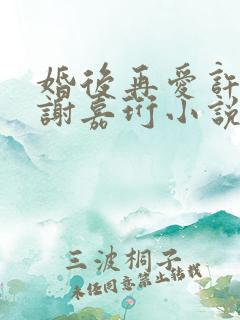 婚後再愛許
謝嘉珩小說
三波桐子
未经同意禁止转载